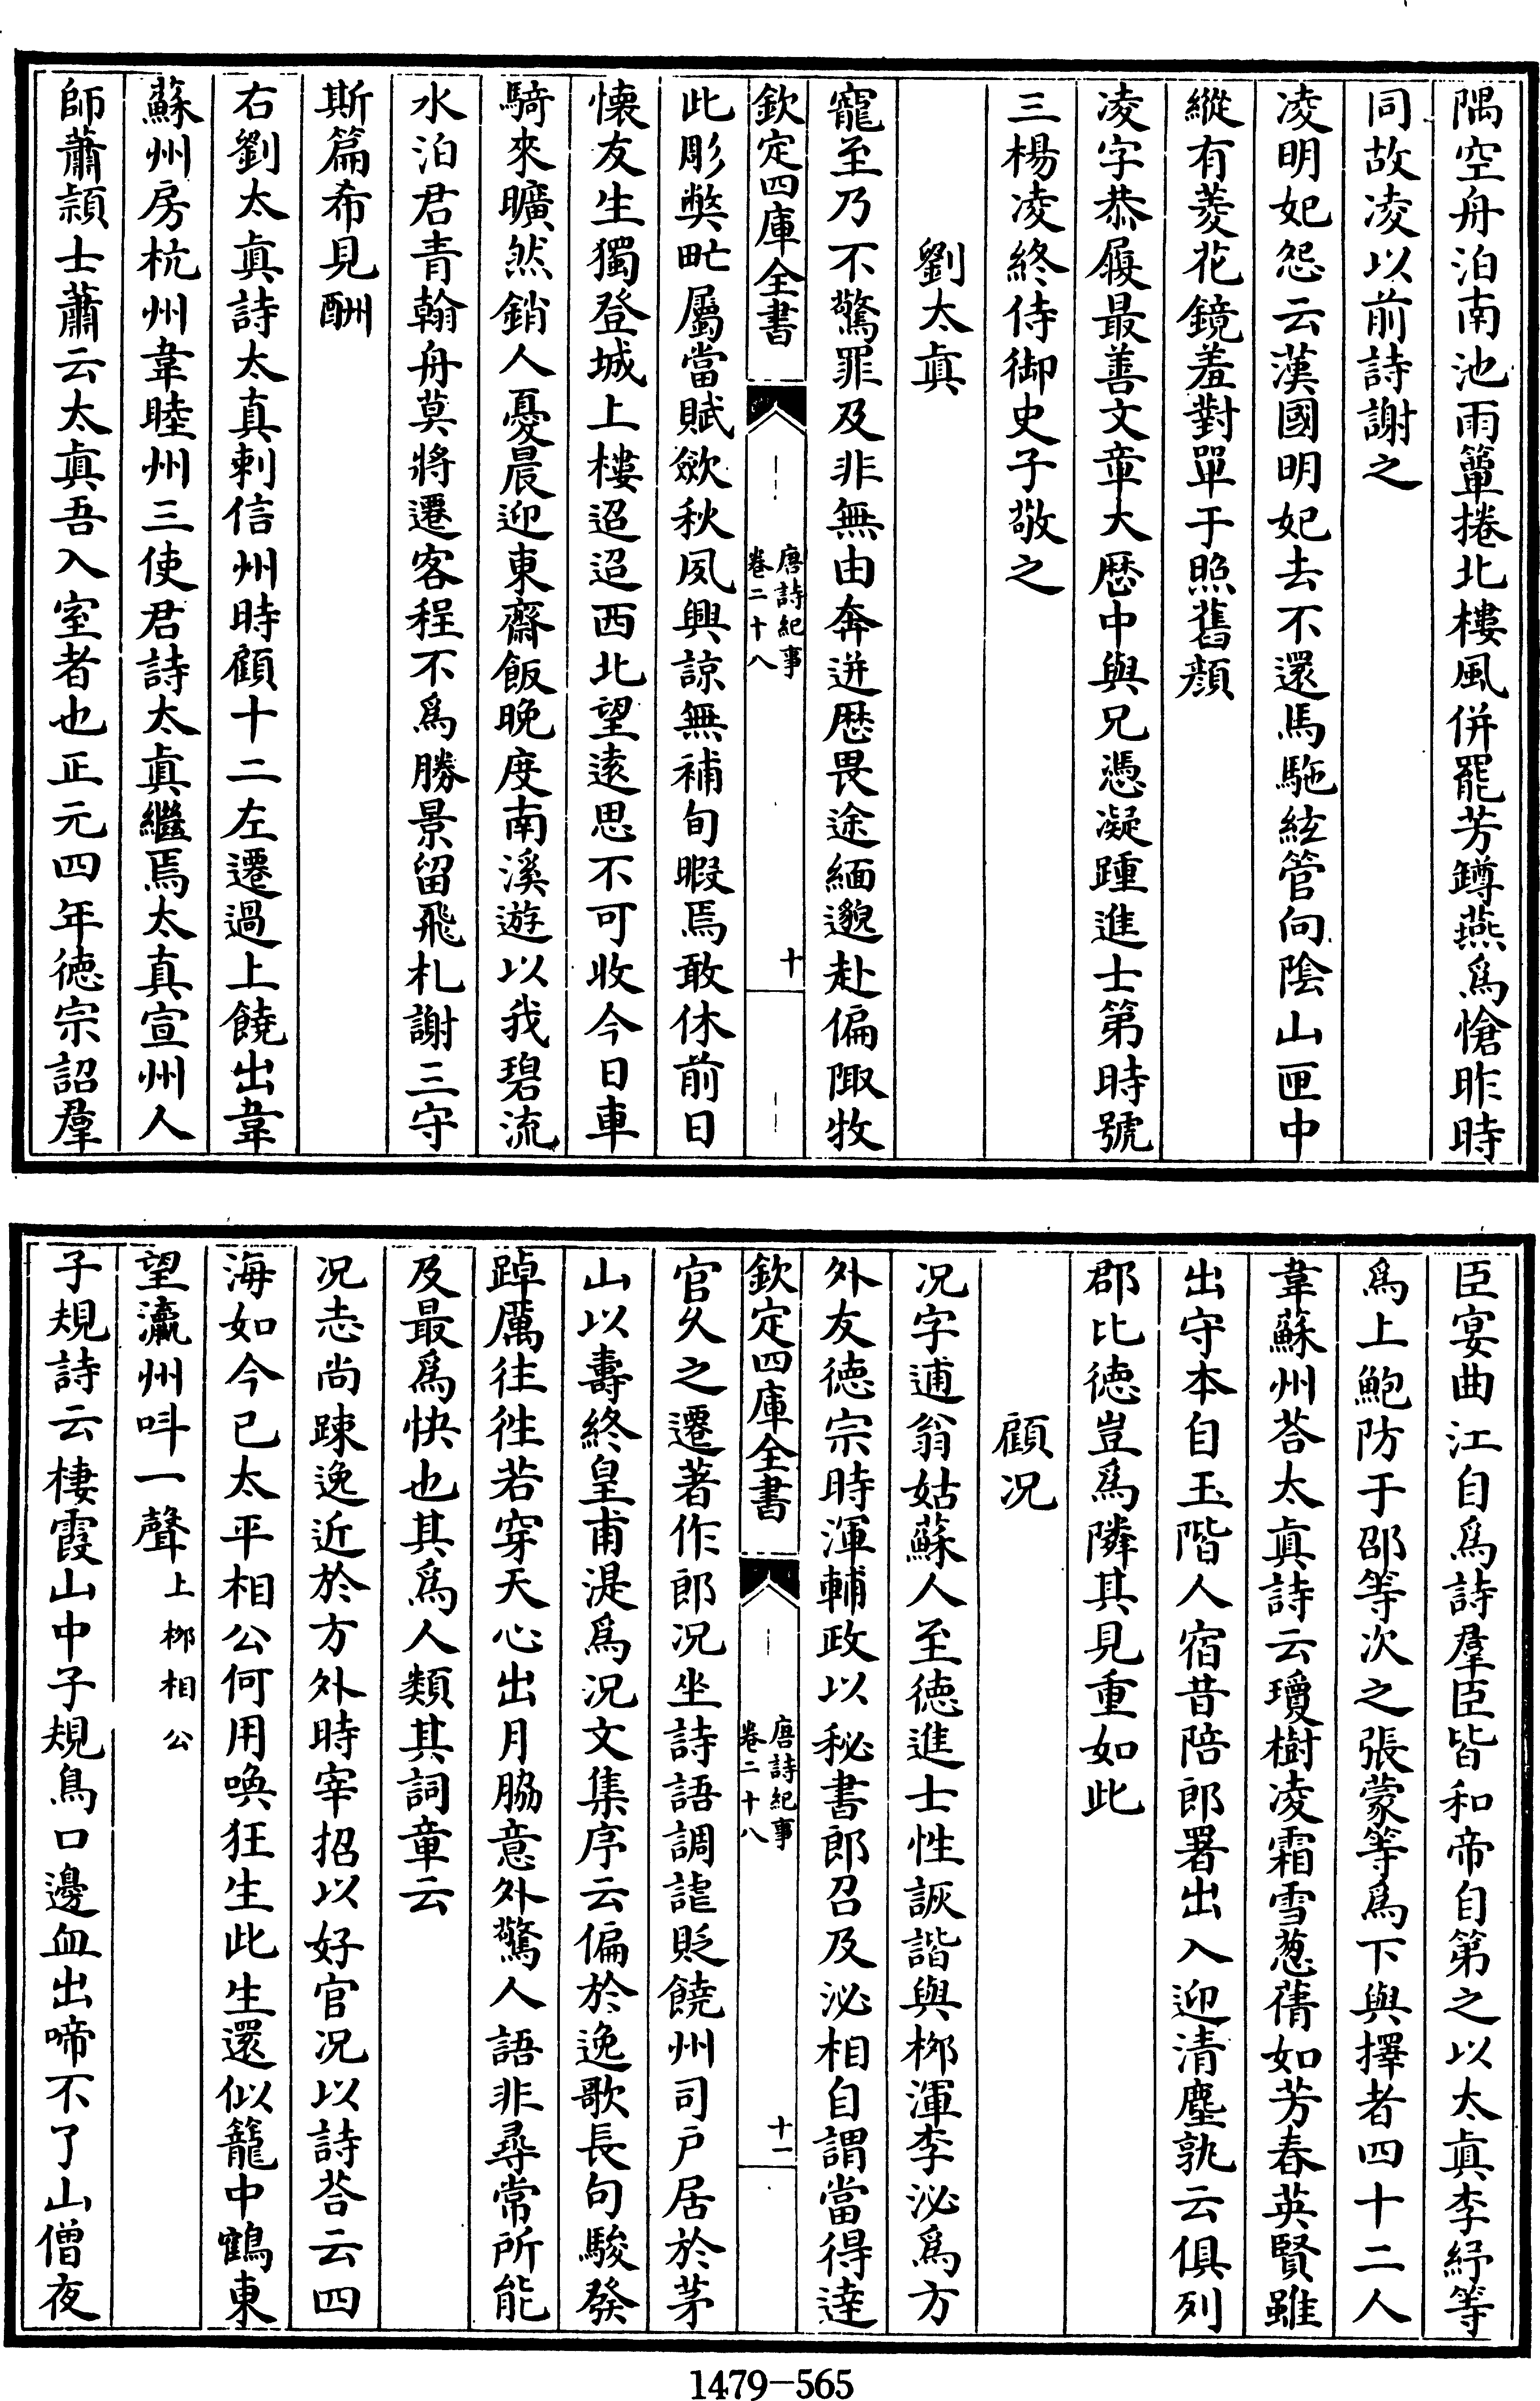 隅空舟泊南池雨簟捲北樓風併罷芳鐏燕爲愴昨時
同故凌以前詩謝之
凌明妃怨云漢國明妃去不還馬駞絃管向隂山匣中
縱有菱花鏡羞對單于照舊顔
凌字恭履最善文章大厯中與兄憑凝踵進士第時號
三楊凌終侍御史子敬之
劉太眞
寵至乃不驚罪及非無由奔迸厯畏途緬邈赴偏陬牧
此彫弊甿屬當賦歛秋夙興諒無補旬暇焉敢休前日
懐友生獨登城上樓迢迢西北望逺思不可收今日車
騎來曠然銷人憂晨迎東齋飯晚度南溪遊以我碧流
水泊君青翰舟莫將遷客程不爲勝景留飛札謝三守
斯篇希見酬
右劉太眞詩太真刺信州時顧十二左遷過上饒出韋
蘇州房杭州韋睦州三使君詩太眞繼焉太真宣州人
師蕭頴士蕭云太眞吾入室者也正元四年徳宗詔羣
欽定四庫全書
唐詩紀事
卷二十八
十
臣宴曲江自爲詩羣臣皆和帝自第之以太眞李紓等
爲上鮑防于邵等次之張蒙等爲下與擇者四十二人
韋蘇州荅太眞詩云瓊樹凌霜雪葱蒨如芳春英賢雖
出守本自玉階人宿昔陪郎署出入迎清塵孰云俱列
郡比徳豈爲隣其見重如此
顧况
况字逋翁姑蘇人至徳進士性詼諧與栁渾李泌爲方
外友徳宗時渾輔政以秘書郎召及泌相自謂當得逹
官久之遷著作郎况坐詩語調謔貶饒州司戸居於茅
山以壽終皇甫湜爲况文集序云偏於逸歌長句駿發
踔厲往徃若穿天心出月脇意外驚人語非尋常所能
及最爲快也其爲人類其詞章云
况志尚踈逸近於方外時宰招以好官况以詩荅云四
海如今已太平相公何用喚狂生此生還似籠中鶴東
望瀛州呌一聲上栁相公
子規詩云棲霞山中子規鳥口邊血出啼不了山僧夜
欽定四庫全書
唐詩紀事
卷二十八
十一
1479-565